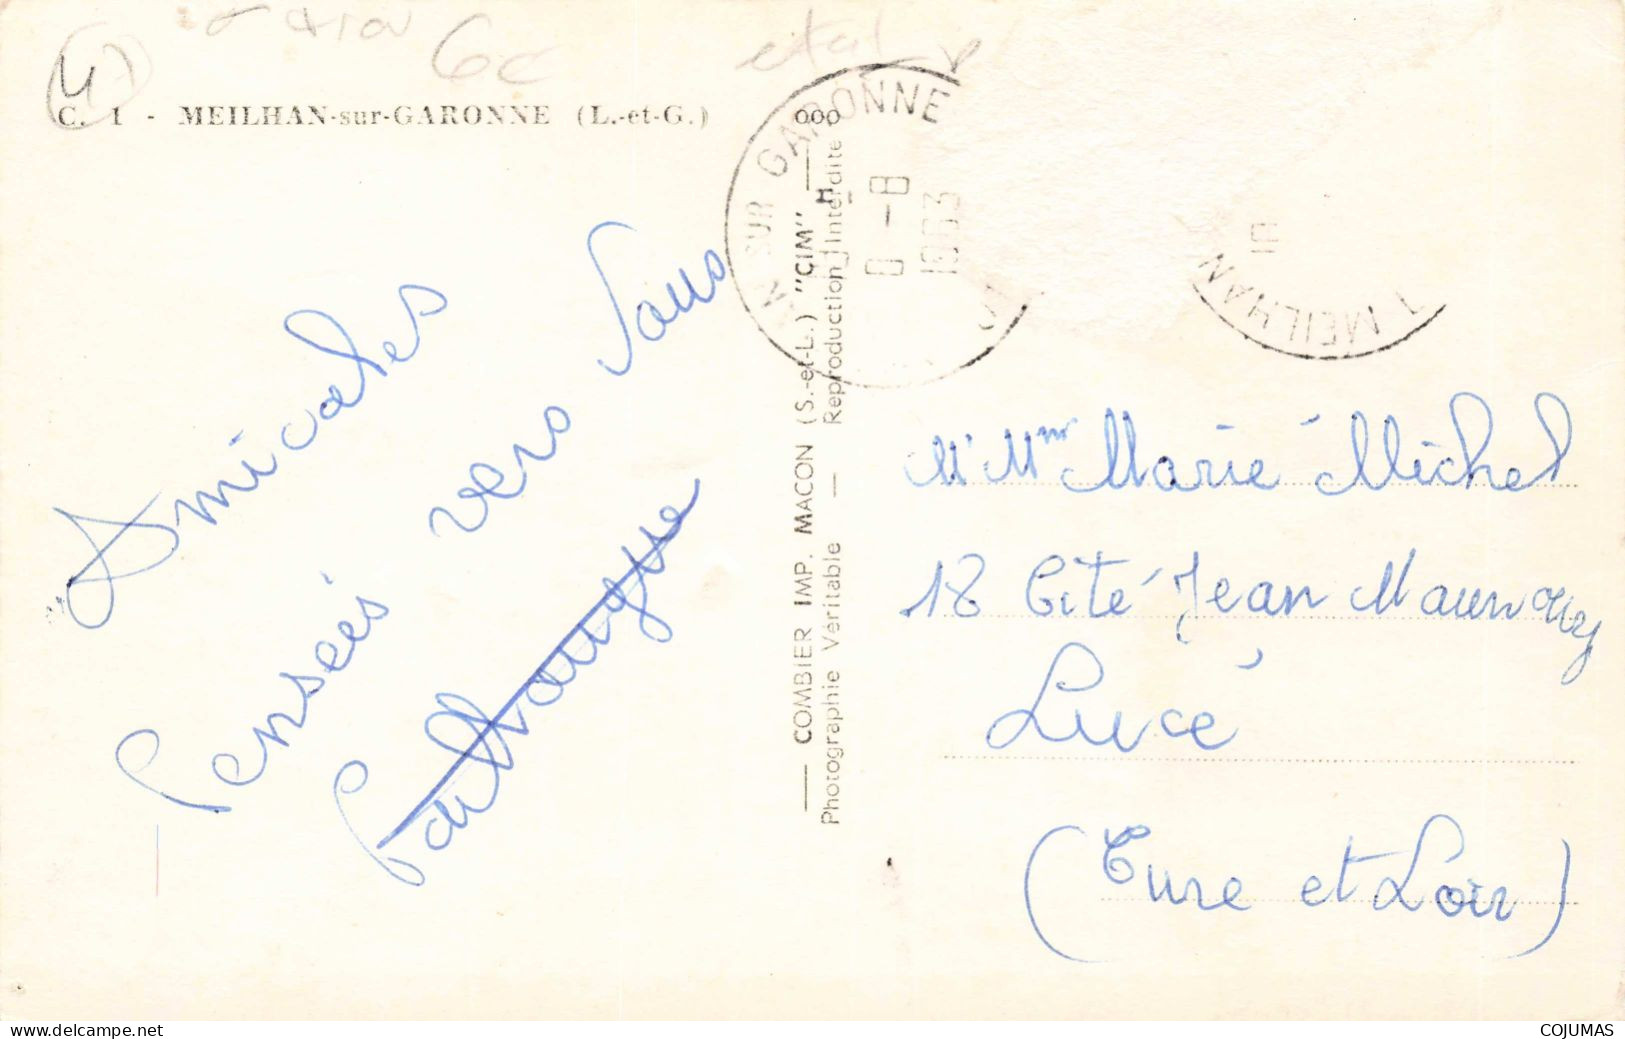 C. 1 - MEILHAN-sur-GARONNE (L.-et-G.)
6€
état
SUR GARONNE
8-8
1963
MEILHAN
Amicales
Pensées vers Vous
COMBIER IMP. MACON (S.-et-L.) "CIM"
Photographie Véritable — Reproduction Interdite
Mr Mme Marie Michel
18 Cité Jean Maunoury
Lucé
(Eure et Loir)
www.delcampe.net
COJUMAS